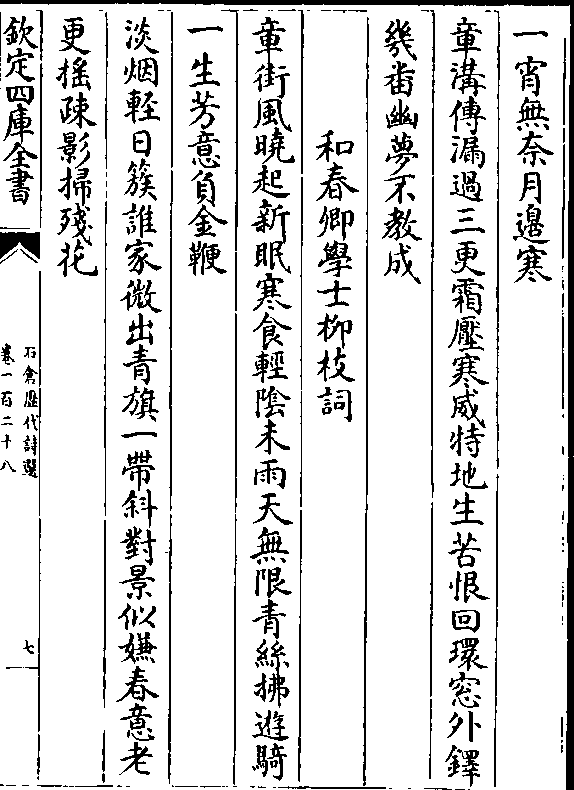 一宵無奈月邉寒
章溝傳漏過三更霜壓寒威特地生苦恨回環窓外鐸
幾畨幽夢不教成
和春卿學士柳枝詞
章街風曉起新眠寒食輕隂未雨天無限青絲拂遊騎
一生芳意負金鞭
淡烟輕日簇誰家微出青旗一帶斜對景似嫌春意老
更揺疎影掃殘花
欽定四庫全書
石倉歴代詩選
卷一百二十八
七